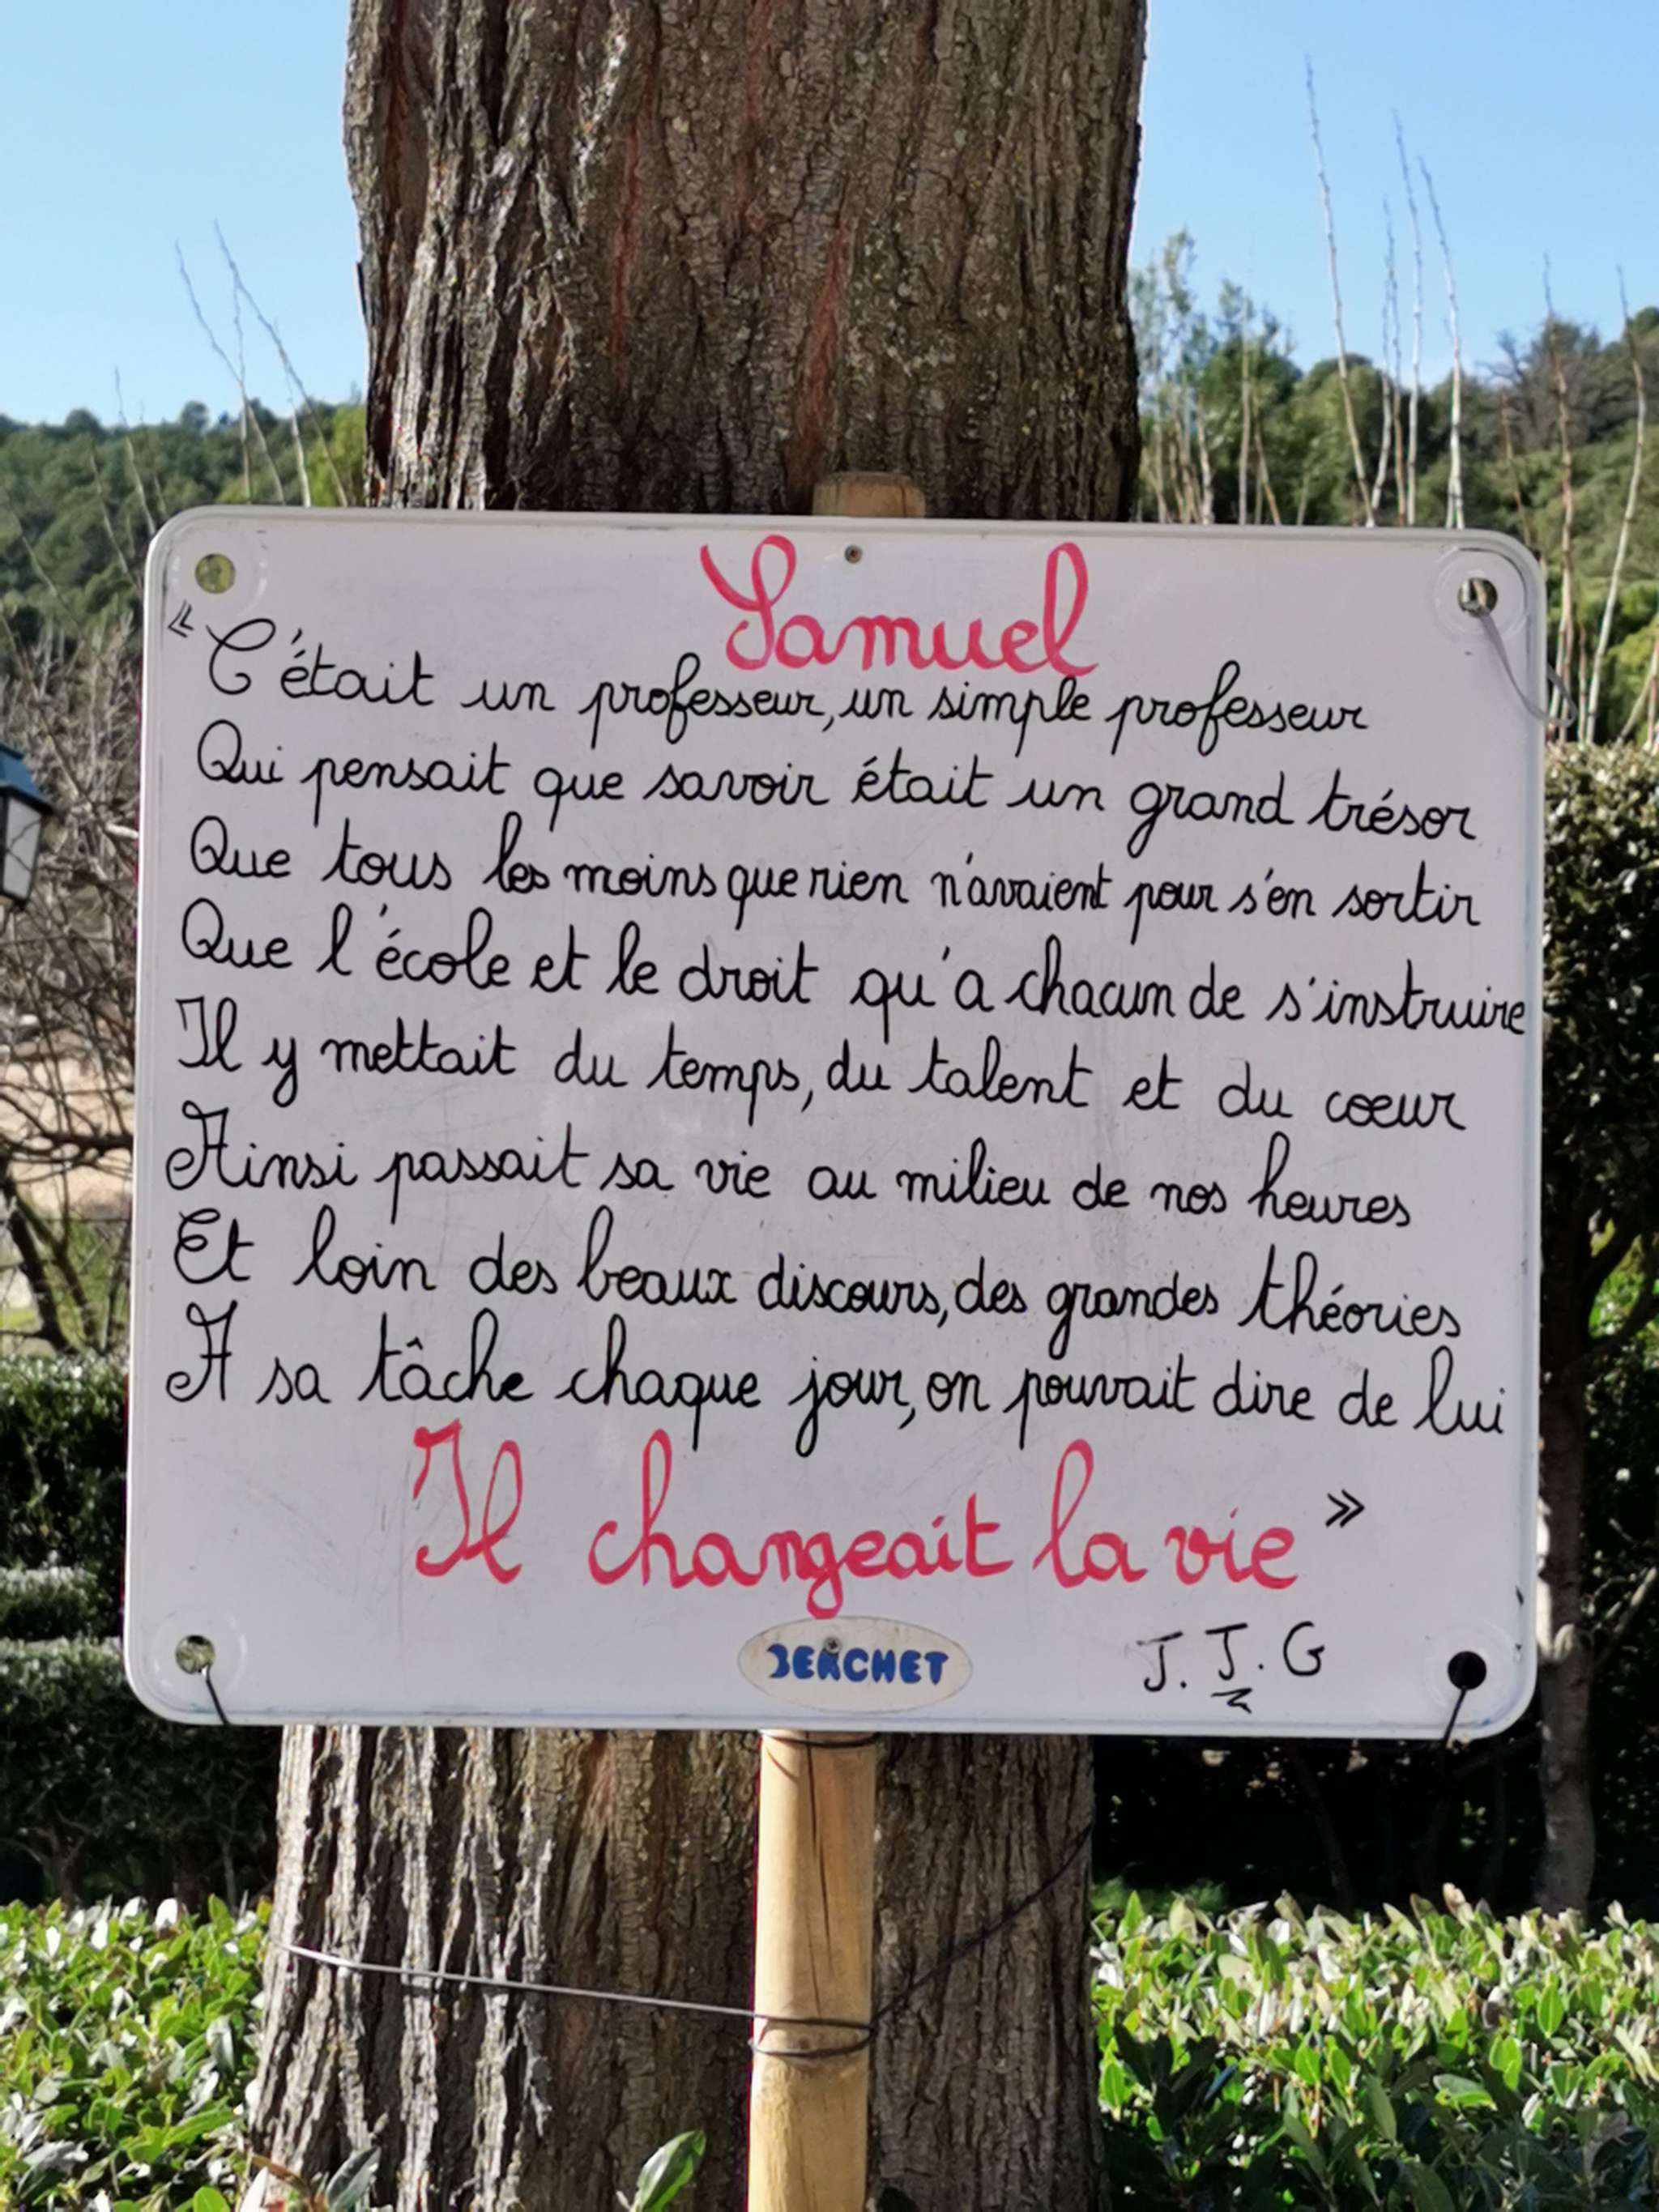 Samuel
« C'était un professeur, un simple professeur
Qui pensait que savoir était un grand trésor
Que tous les moins que rien n'avaient pour s'en sortir
Que l'école et le droit qu'a chacun de s'instruire
Il y mettait du temps, du talent et du cœur
Ainsi passait sa vie au milieu de nos heures
Et loin des beaux discours, des grandes théories
A sa tâche chaque jour, on pouvait dire de lui
Il changeait la vie »
BERCHET
J. J. G